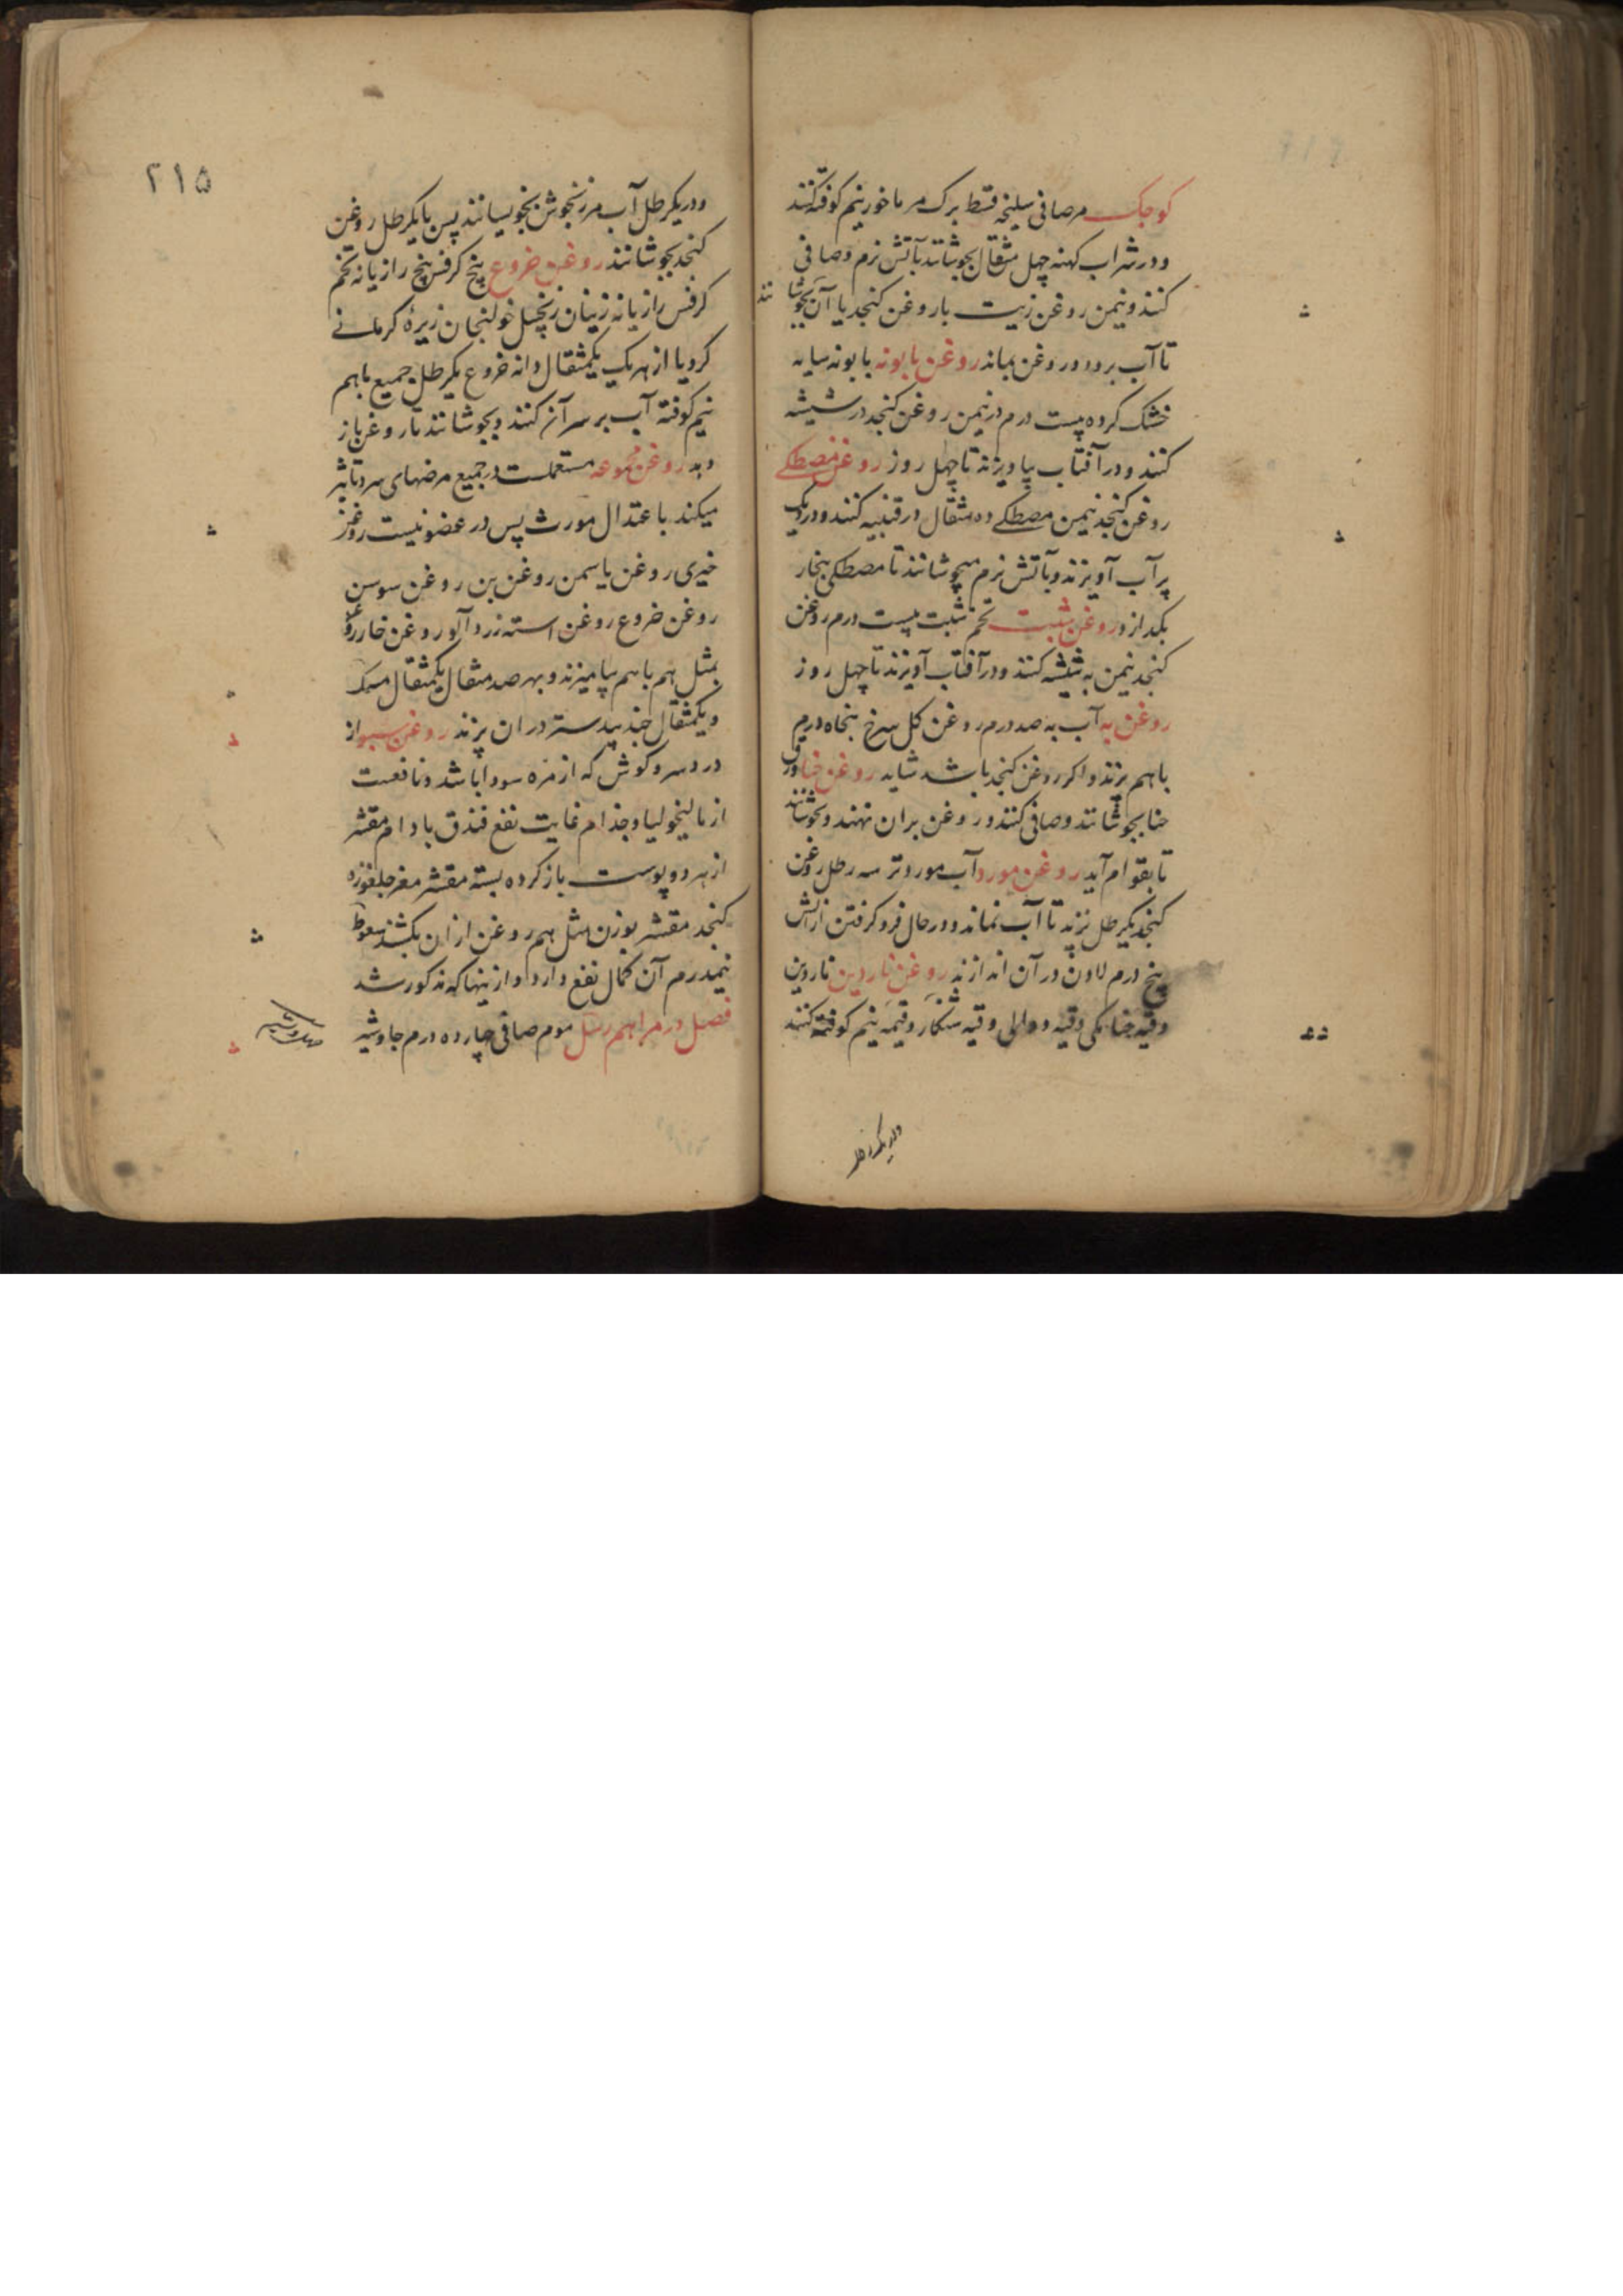 کوجک مر صافی سلیخه قسط برک مر ماخور نیم کوفته کنند
و در شراب کهنه چهل مثقال بجوشانند بآتش نرم و صافی
کنند و نیمن روغن زیت با روغن کنجد با آن بجوشانند
تا آب برود و روغن بماند روغن بابونه بابونه سایه
خشک کرده بیست درم در نیمن روغن کنجد در شیشه
کنند و در آفتاب بیاویزند تا چهل روز روغن مصطکے
روغن کنجد نیمن مصطکے ده مثقال در قنینه کنند و در دیک
پر آب آویزند و بآتش نرم میجوشانند تا مصطکی ببخار
بکدازد روغن شبت تخم شبت بیست درم روغن
کنجد نیمن به شیشه کنند و در آفتاب آویزند تا چهل روز
روغن به آب به صد درم روغن کل سرخ پنجاه درم
باهم پزند و اکر روغن کنجد باشد شاید روغن حنا ورق
حنا بجوشانند و صافی کنند و روغن بران نهند و بجوشانند
تا بقوام آید روغن مورد آب مورد تر سه رطل روغن
کنجد یکرطل پزند تا آب نماند و در حال فرو کرفتن از آتش
پنج درم لادن در آن اندازند روغن ناردین ناردین
وقیه وقیه و وقیه نیم کوفته کنند
و در یکرطل
۲۱۵
و در یکرطل آب مرزنجوش بخویسانند پس با یکرطل روغن
کنجد بجوشانند روغن خروع بیخ کرفس بیخ رازیانه تخم
کرفس رازیانه زنیان زنجبیل خولنجان زیرهٔ کرمانے
کرویا از هر یک یکمثقال دانه خروع یکرطل جمیع باهم
نیم کوفته آب بر سر آن کنند و بجوشانند تا روغن باز
دهد روغن مجموعه مستعملست در جمیع مرضهای سرد تاثیر
میکند باعتدال پس در عضو نیست روغن
خیری روغن یاسمن روغن بن روغن سوسن
روغن خروع روغن استه زردآلو روغن خار روغن
بمثل هم باهم بیامیزند و بهر صد مثقال یکمثقال مسک
و یکمثقال جندبیدستر در ان پزند روغن سبو از
درد سر و کوش که از مره سودا باشد و نافعست
از مالیخولیا و جذام غایت نفع فندق بادام مقشر
از هر دو پوست باز کرده پسته مقشر مغز جلغوزه
کنجد مقشر بوزن مثل هم روغن از ان بکشند سعوط
نیمدرم آن کمال نفع دارد و از ینها که مذکور شد
فصل در مراهم رسل موم صافی چهارده درم جاوشیر